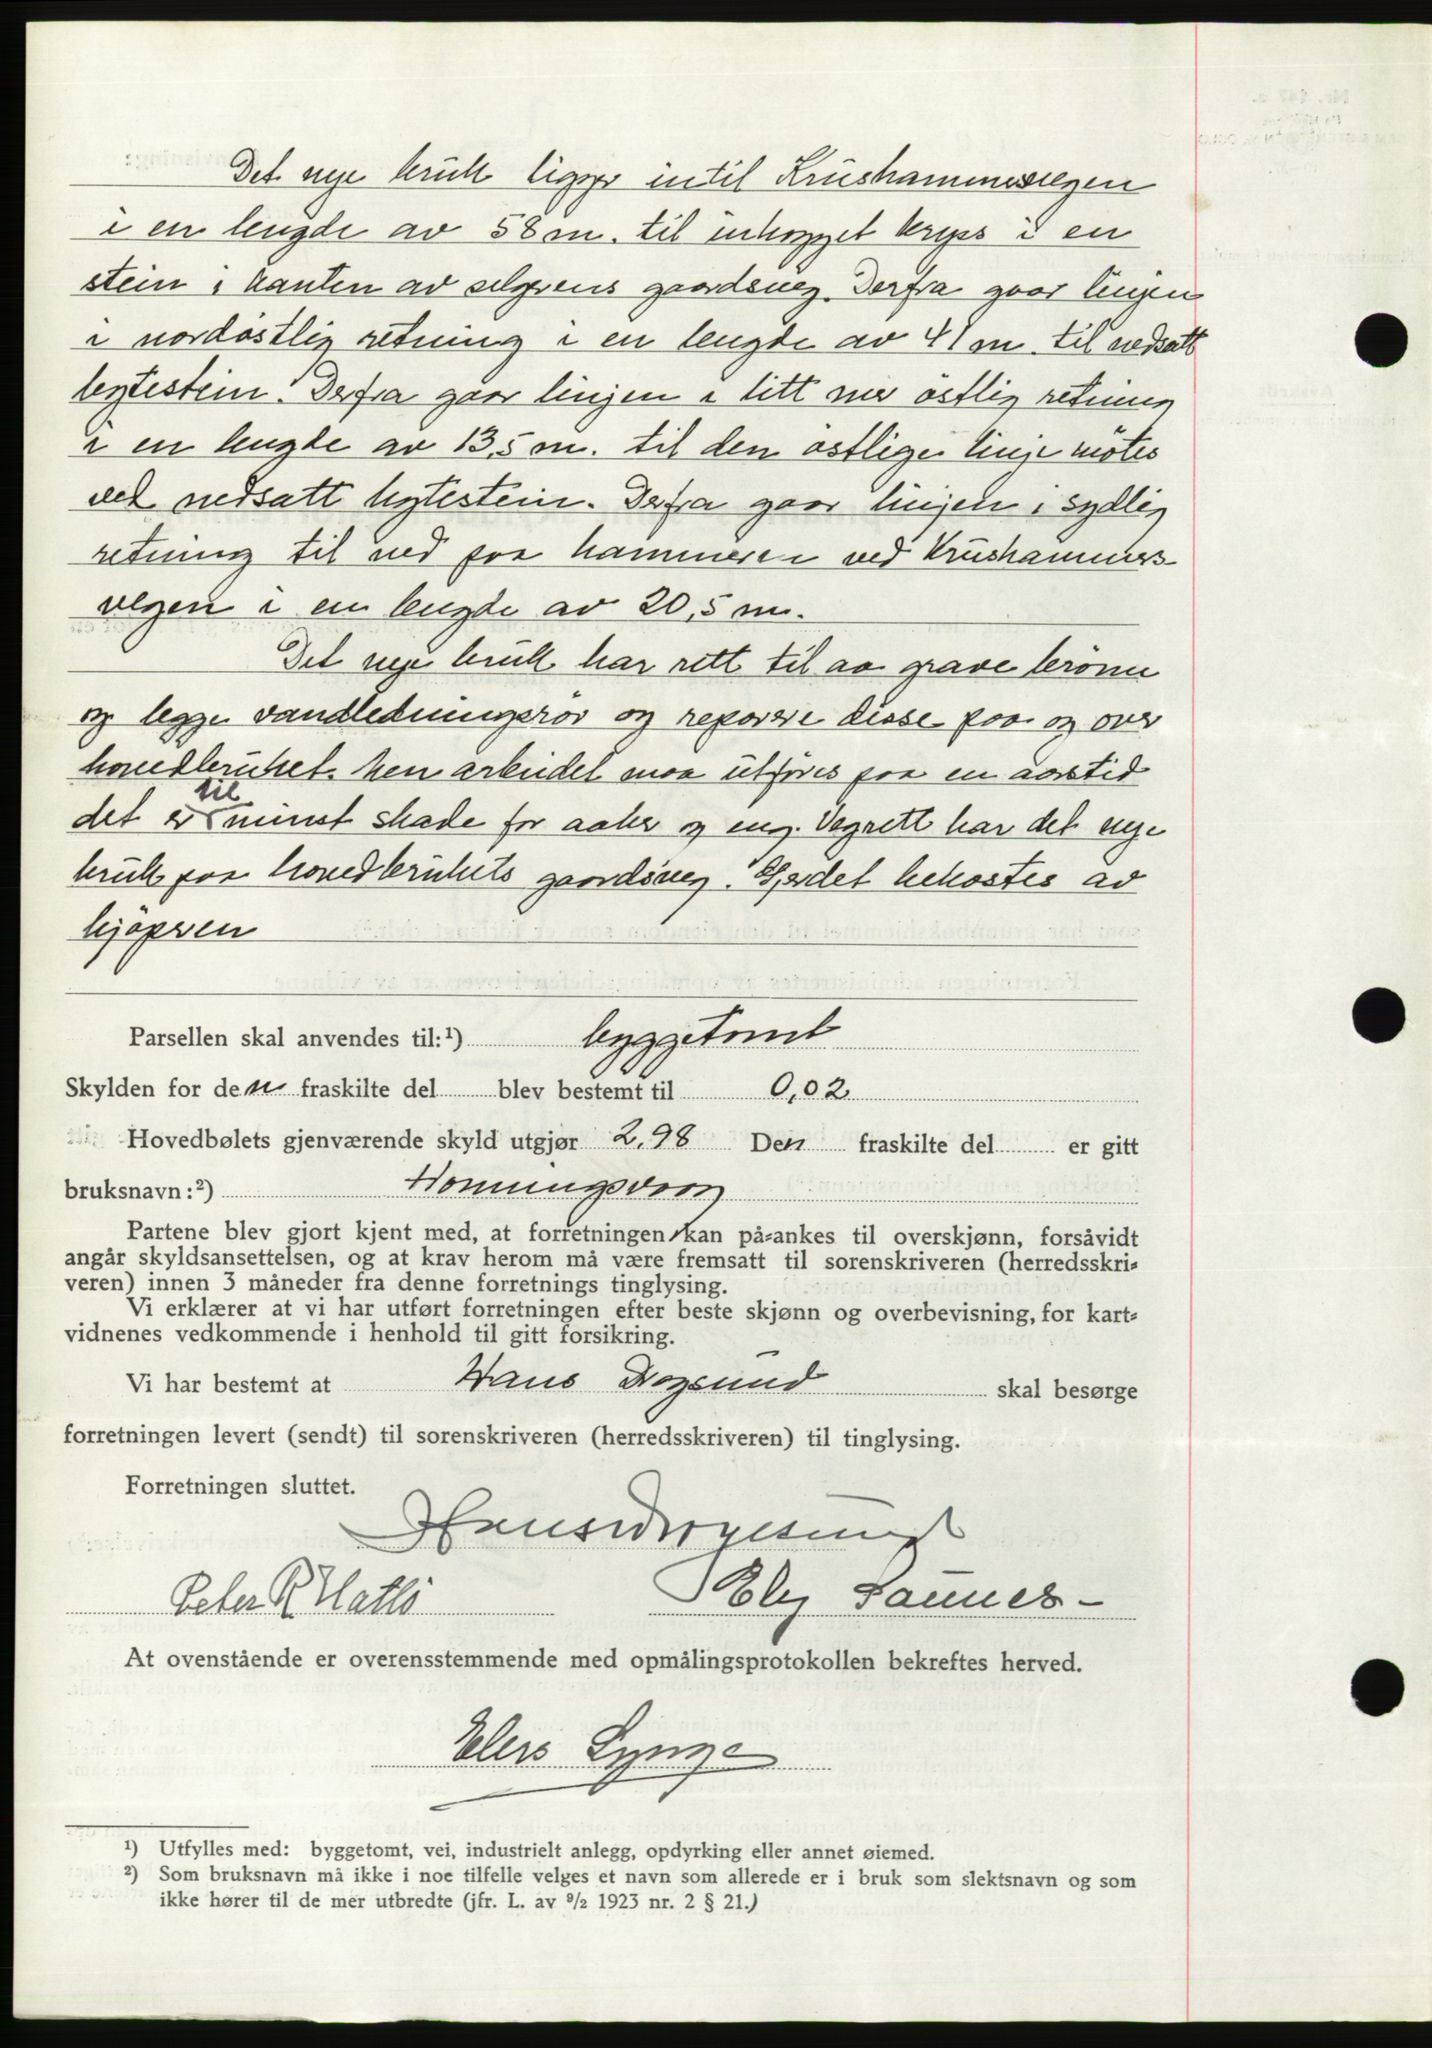 Det nye bruk ligger intil Krushammersvegen
i en lengde av 58 m. til inhogget kryss i en
stein i kanten av selgerens gaardsveg. Derfra gaar linjen
i nordøstlig retning i en lengde av 41 m. til nedsatt
bytestein. Derfra gaar linjen i litt mer østlig retning
i en lengde av 13,5 m. til den østlige linje møtes
ved nedsatt bytestein. Derfra gaar linjen i sydlig
retning til ned paa hammeren ved Krushammers-
vegen i en lengde av 20,5 m.
Det nye bruk har rett til aa grave brønn
og legge vandledningsrør og reparere disse paa og over
hovedbruket. Men arbeidet maa utføres paa en aarstid
det er til minst skade for aaker og eng. Vegrett har det nye
bruk paa hovedbrukets gaardsveg. Gjerdet bekostes av
kjøperen
Parsellen skal anvendes til:¹) byggetomt
Skylden for den fraskilte del blev bestemt til 0,02
Hovedbølets gjenværende skyld utgjør 2,98 Den fraskilte del er gitt
bruksnavn:²) Honningsvoog
Partene blev gjort kjent med, at forretningen kan på-ankes til overskjønn, forsåvidt
angår skyldsansettelsen, og at krav herom må være fremsatt til sorenskriveren (herredsskri-
veren) innen 3 måneder fra denne forretnings tinglysing.
Vi erklærer at vi har utført forretningen efter beste skjønn og overbevisning, for kart-
vidnenes vedkommende i henhold til gitt forsikring.
Vi har bestemt at Hans Drogsund skal besørge
forretningen levert (sendt) til sorenskriveren (herredsskriveren) til tinglysing.
Forretningen sluttet.
Hans Drogesund
Peter R Hatlö Elly Saunes
At ovenstående er overensstemmende med opmålingsprotokollen bekreftes herved.
Elers Synge
¹) Utfylles med: byggetomt, vei, industrielt anlegg, opdyrking eller annet øiemed.
²) Som bruksnavn må ikke i noe tilfelle velges et navn som allerede er i bruk som slektsnavn og som
ikke hører til de mer utbredte (jfr. L. av 9/2 1923 nr. 2 § 21.)